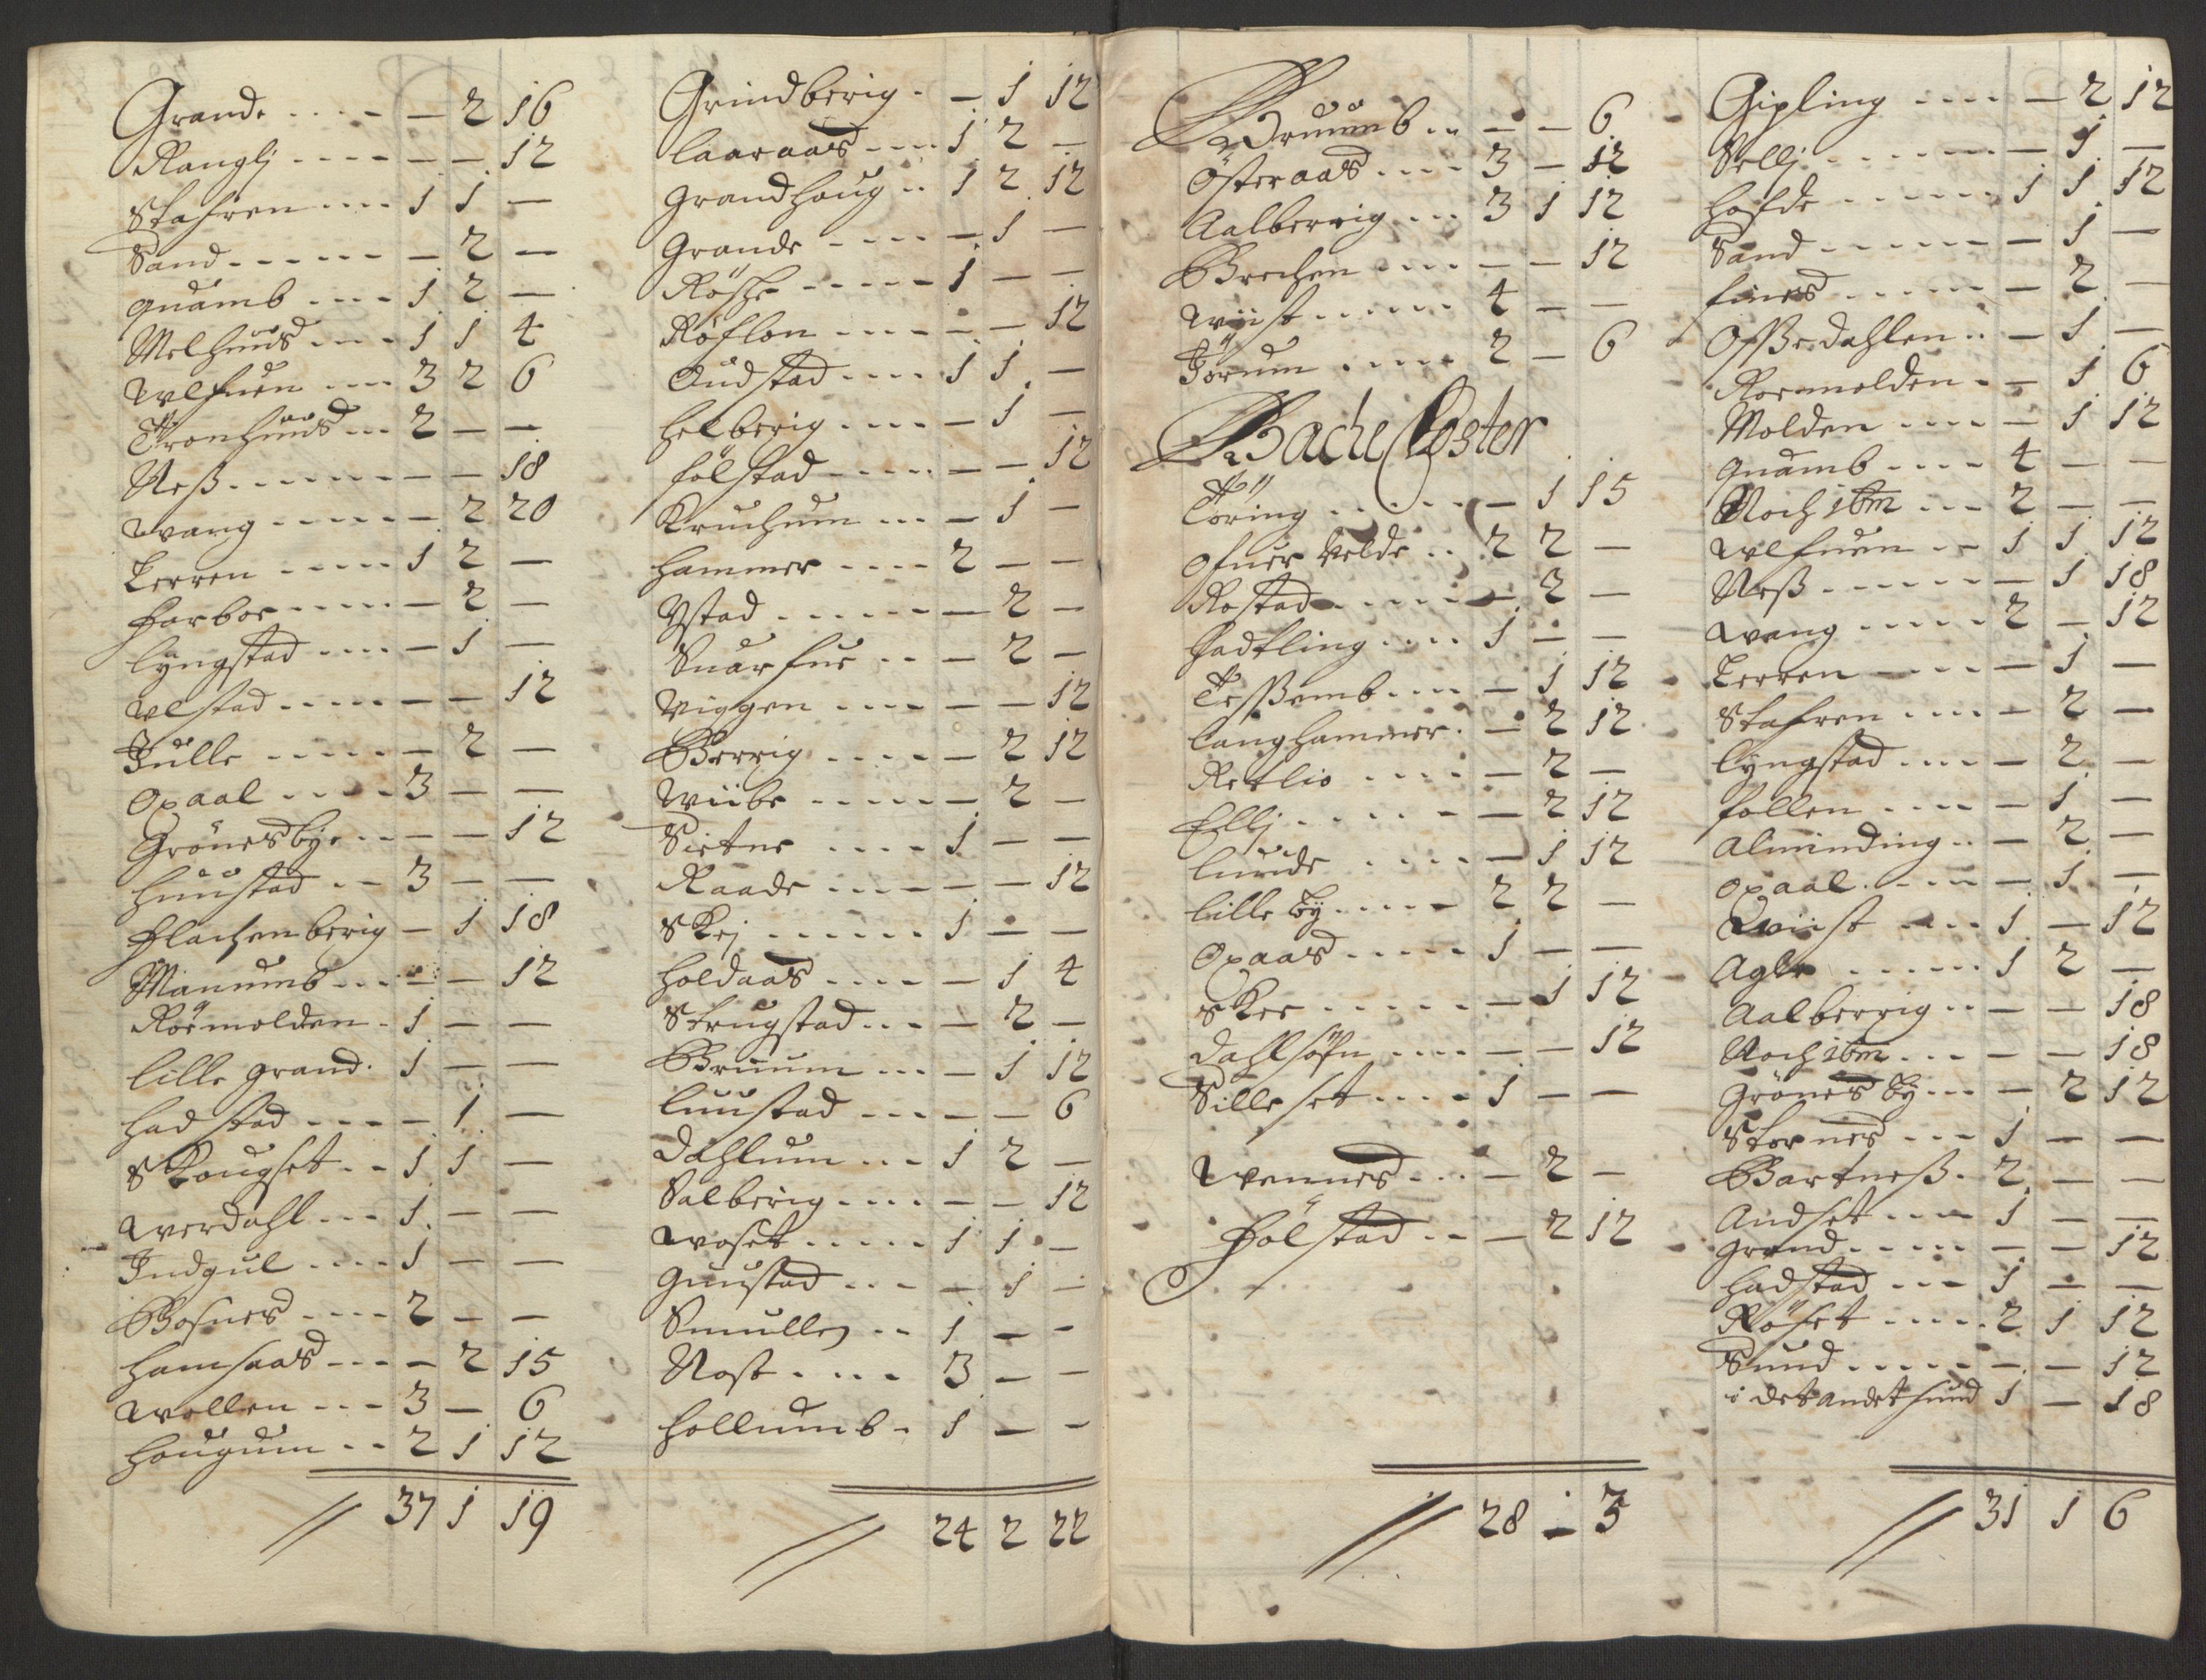 Grande .... — 2 16
Ranglj .... — — 12
Stafren .... 1 1 —
Sand ...... — 2 —
quamb .... 1 2 —
Melhuus ... 1 1 4
Wlfuen ... 3 2 6
Tronhuus ... 2 — —
Neß ...... — — 18
Wang ..... — 2 20
Lerren ..... 1 2 —
Harboe ..... — 2 —
lyngstad .... — 1 —
Wlstad ..... — — 12
Julle ..... — 2 —
Opaal .... 3 — —
Grönesbye .. — — 12
Huustad .. 3 — —
Hlachenberig — 1 18
Manumb ... — — 12
Röemolden . 1 — —
lille grand . 1 — —
hadstad .... — 1 —
Skougset .. 1 1 —
Werdahl ... 1 — —
Indgul .... 1 — —
Bosnes .... 2 — —
hamsaas .... — 2 15
Wollen ... 3 — 6
hougum .. 2 1 12
// 37 1 19
Grindberig . — 1 12
laaraas .... 1 2 —
grandhoug .. 1 2 12
grande ..... — 1 —
Röshe ..... 1 — —
Röflon .... — — 12
Oudstad .... 1 1 —
helberig .... — 1 —
fölstad ..... — — 12
Kruchum ... — 1 —
hammer .... 2 — —
Ystad ...... — 2 —
Snarfue .. — 2 —
Viggen .... — — 12
Berrig .... — 2 12
Wiibe ..... — 2 —
Sietne .... 1 — —
Raade ..... — — 12
Skej ...... 1 — —
holdaas .... — 1 4
Strugstad ... — 2 —
Bruum ... — 1 12
luustad .... — — 6
Dahlum ... 1 2 —
Salberig .... — — 12
Woset ..... 1 1 —
Guustad ... — 1 —
Smullej .. 1 — —
Nost .... 3 — —
hollumb . 1 — —
// 24 2 22
Bruumb .. — — 6
Österaas .... 3 — 12
Aalberrig ... 3 1 12
Brechen .... — — 12
Wiist ..... 4 — —
Jörum ..... 2 — 6
Bache Closter
Töring ..... — 1 15
ofuer Velde .. 2 2 —
Rostad ..... — 2 —
hadtling .... 1 — —
Teßemb .... — 1 12
langhammer . — 2 12
Retlio .... — 2 —
Ellj ..... — 2 12
lunde .... — 1 12
lille by ..... 2 2 —
Opaas ..... 1 — —
Skee ..... — 1 12
Dahlsöfn .... — — 12
Silleset .... 1 — —
Wennes ... — 2 —
Holstad .. — 2 12
// 28 — 3
Gipling .... — 2 12
Sellj ...... — 1 —
hofde ..... 1 1 12
Sand ...... — 1 —
fines ..... — 2 —
Oßedahlen .. — 1 —
Roemolden . — 1 6
Molden .... — 1 12
quamb .... 4 — —
Noch ibm ... 2 — —
Wlfuen .. 1 1 12
Neß ..... — 1 18
Wang ..... 2 — 12
Lerren .... — 1 —
Stafren .... — 2 —
lyngstad .... — 2 —
follen .... — 1 —
Alminding .. — 2 —
Opaal ..... — 1 —
Wiist .... 1 — 12
Agle ...... 1 2 —
Aalberrig .. — — 18
Noch ibm ... — — 18
Grönes by ... — 2 12
Stornes ... 1 — —
Bartneß . 2 — —
Andset .... 1 — —
grand ..... — — 12
hadstad ... 1 — —
Röset ..... 2 1 12
Sund ..... — — 12
i det andet sund 1 — 18
// 31 1 6